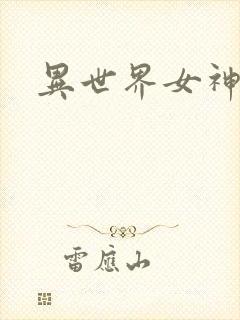 異世界女神
雷應山